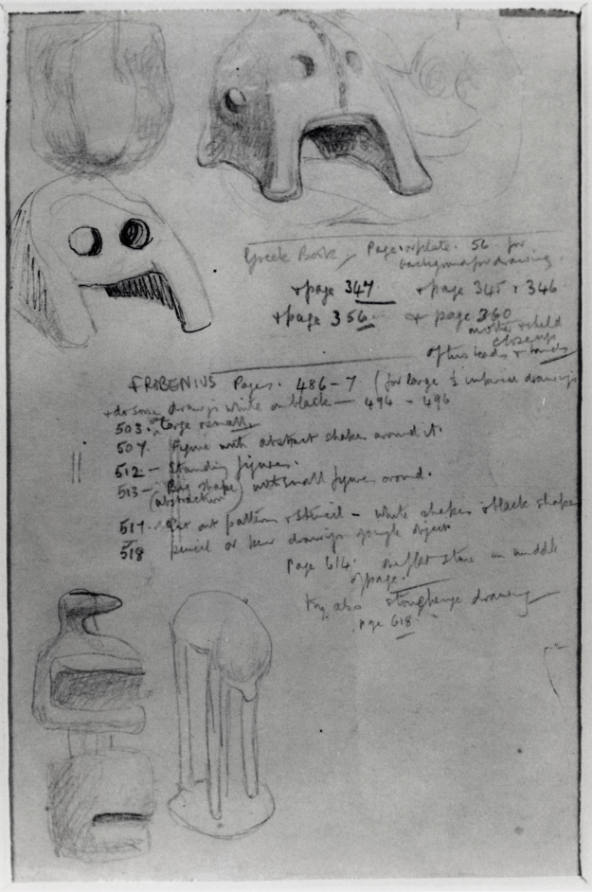 Greek Book, Page or plate. 56 for
background for drawing.
+ page 347 + page 345 + 346
+ page 356 + page 360
mother & child
close up
of his heads & hands
FROBENIUS Pages. 486-7 (for large ½ imperial drawings
+ do some drawings white on black — 494 - 496
503. Large & small
507. Figure with abstract shapes around it.
512 — Standing figures.
513 — Big shape
(abstraction) with small figures around.
517. Cut out pattern & stencil — white shapes & black shapes
518 pencil or pen drawings single object
Page 614. flat stone in middle
of page.
try also stonehenge drawing
page 618